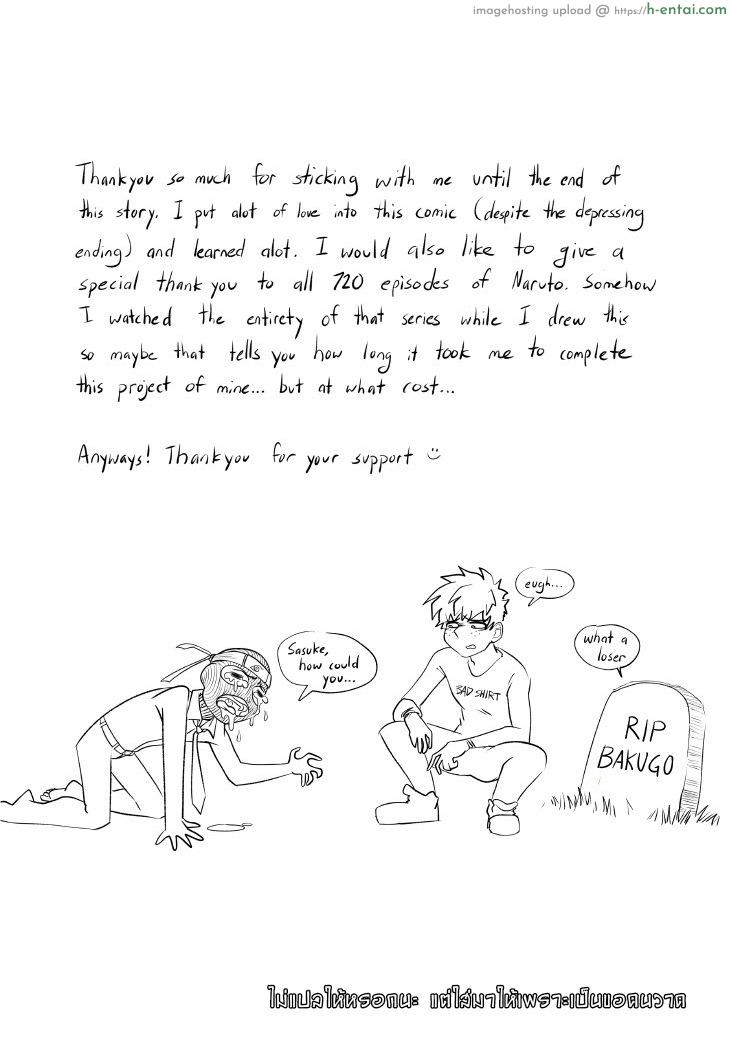 imagehosting upload @ https://h-entai.com
Thankyou so much for sticking with me until the end of
this story. I put alot of love into this comic (despite the depressing
ending) and learned alot. I would also like to give a
special thank you to all 720 episodes of Naruto. Somehow
I watched the entirety of that series while I drew this
so maybe that tells you how long it took me to complete
this project of mine... but at what cost...
Anyways! Thankyou for your support
Sasuke,
how could
you...
eugh...
BAD SHIRT
what a
loser
RIP
BAKUGO
ไม่แปลให้หรอกนะ แต่ใส่มาให้เพราะเป็นของคนวาด